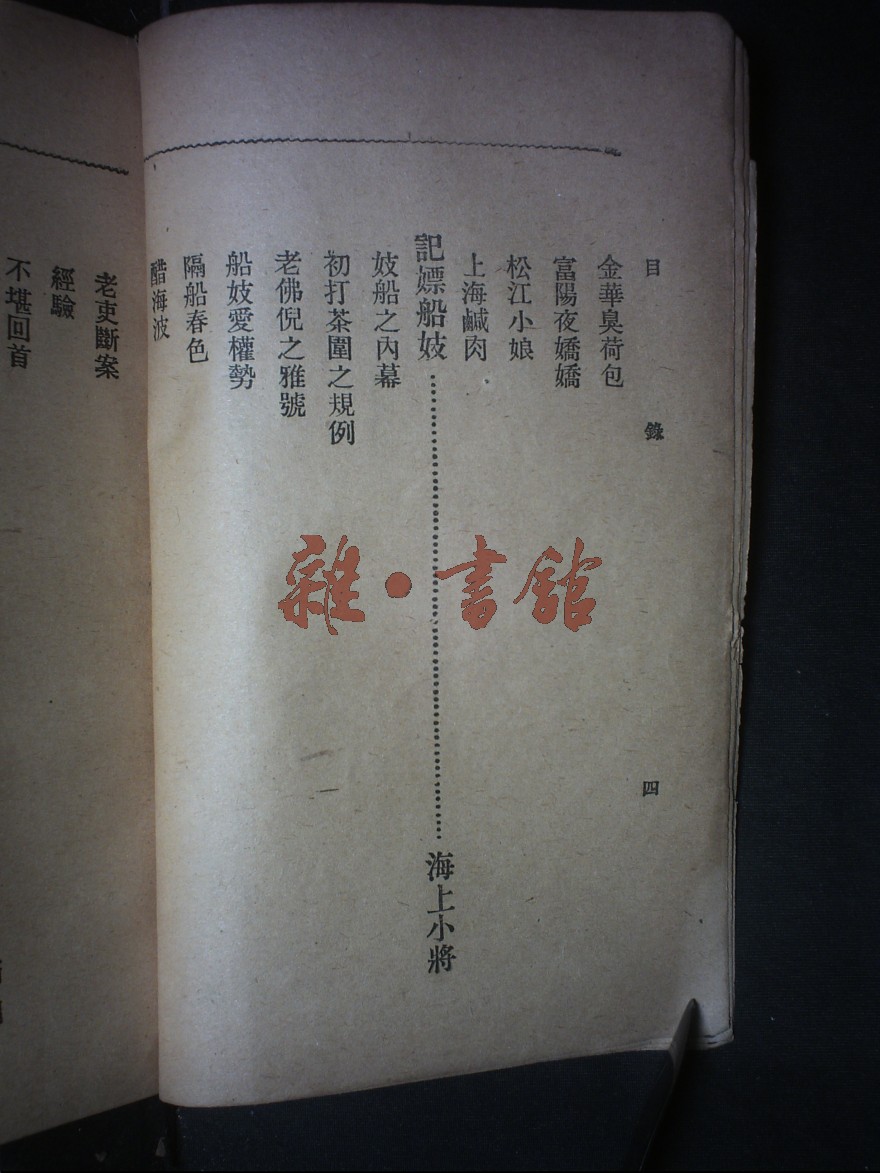 目錄 四
金華臭荷包
富陽夜嬌嬌
松江小娘
上海鹹肉
記嫖船妓……海上小將
妓船之內幕
初打茶圍之規例
老佛倪之雅號
船妓愛權勢
隔船春色
醋海波
老吏斷案
經驗
不堪回首
雜·書館